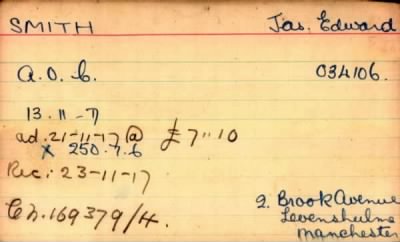 SMITH Jas. Edward
A.O.C. 034106.
13.11-17
ad. 21-11-17 @ £7"10
x 250.7.6
Rec: 23-11-17
Ch. 169379/H.
2. Brook Avenue
Levenshulme
Manchester